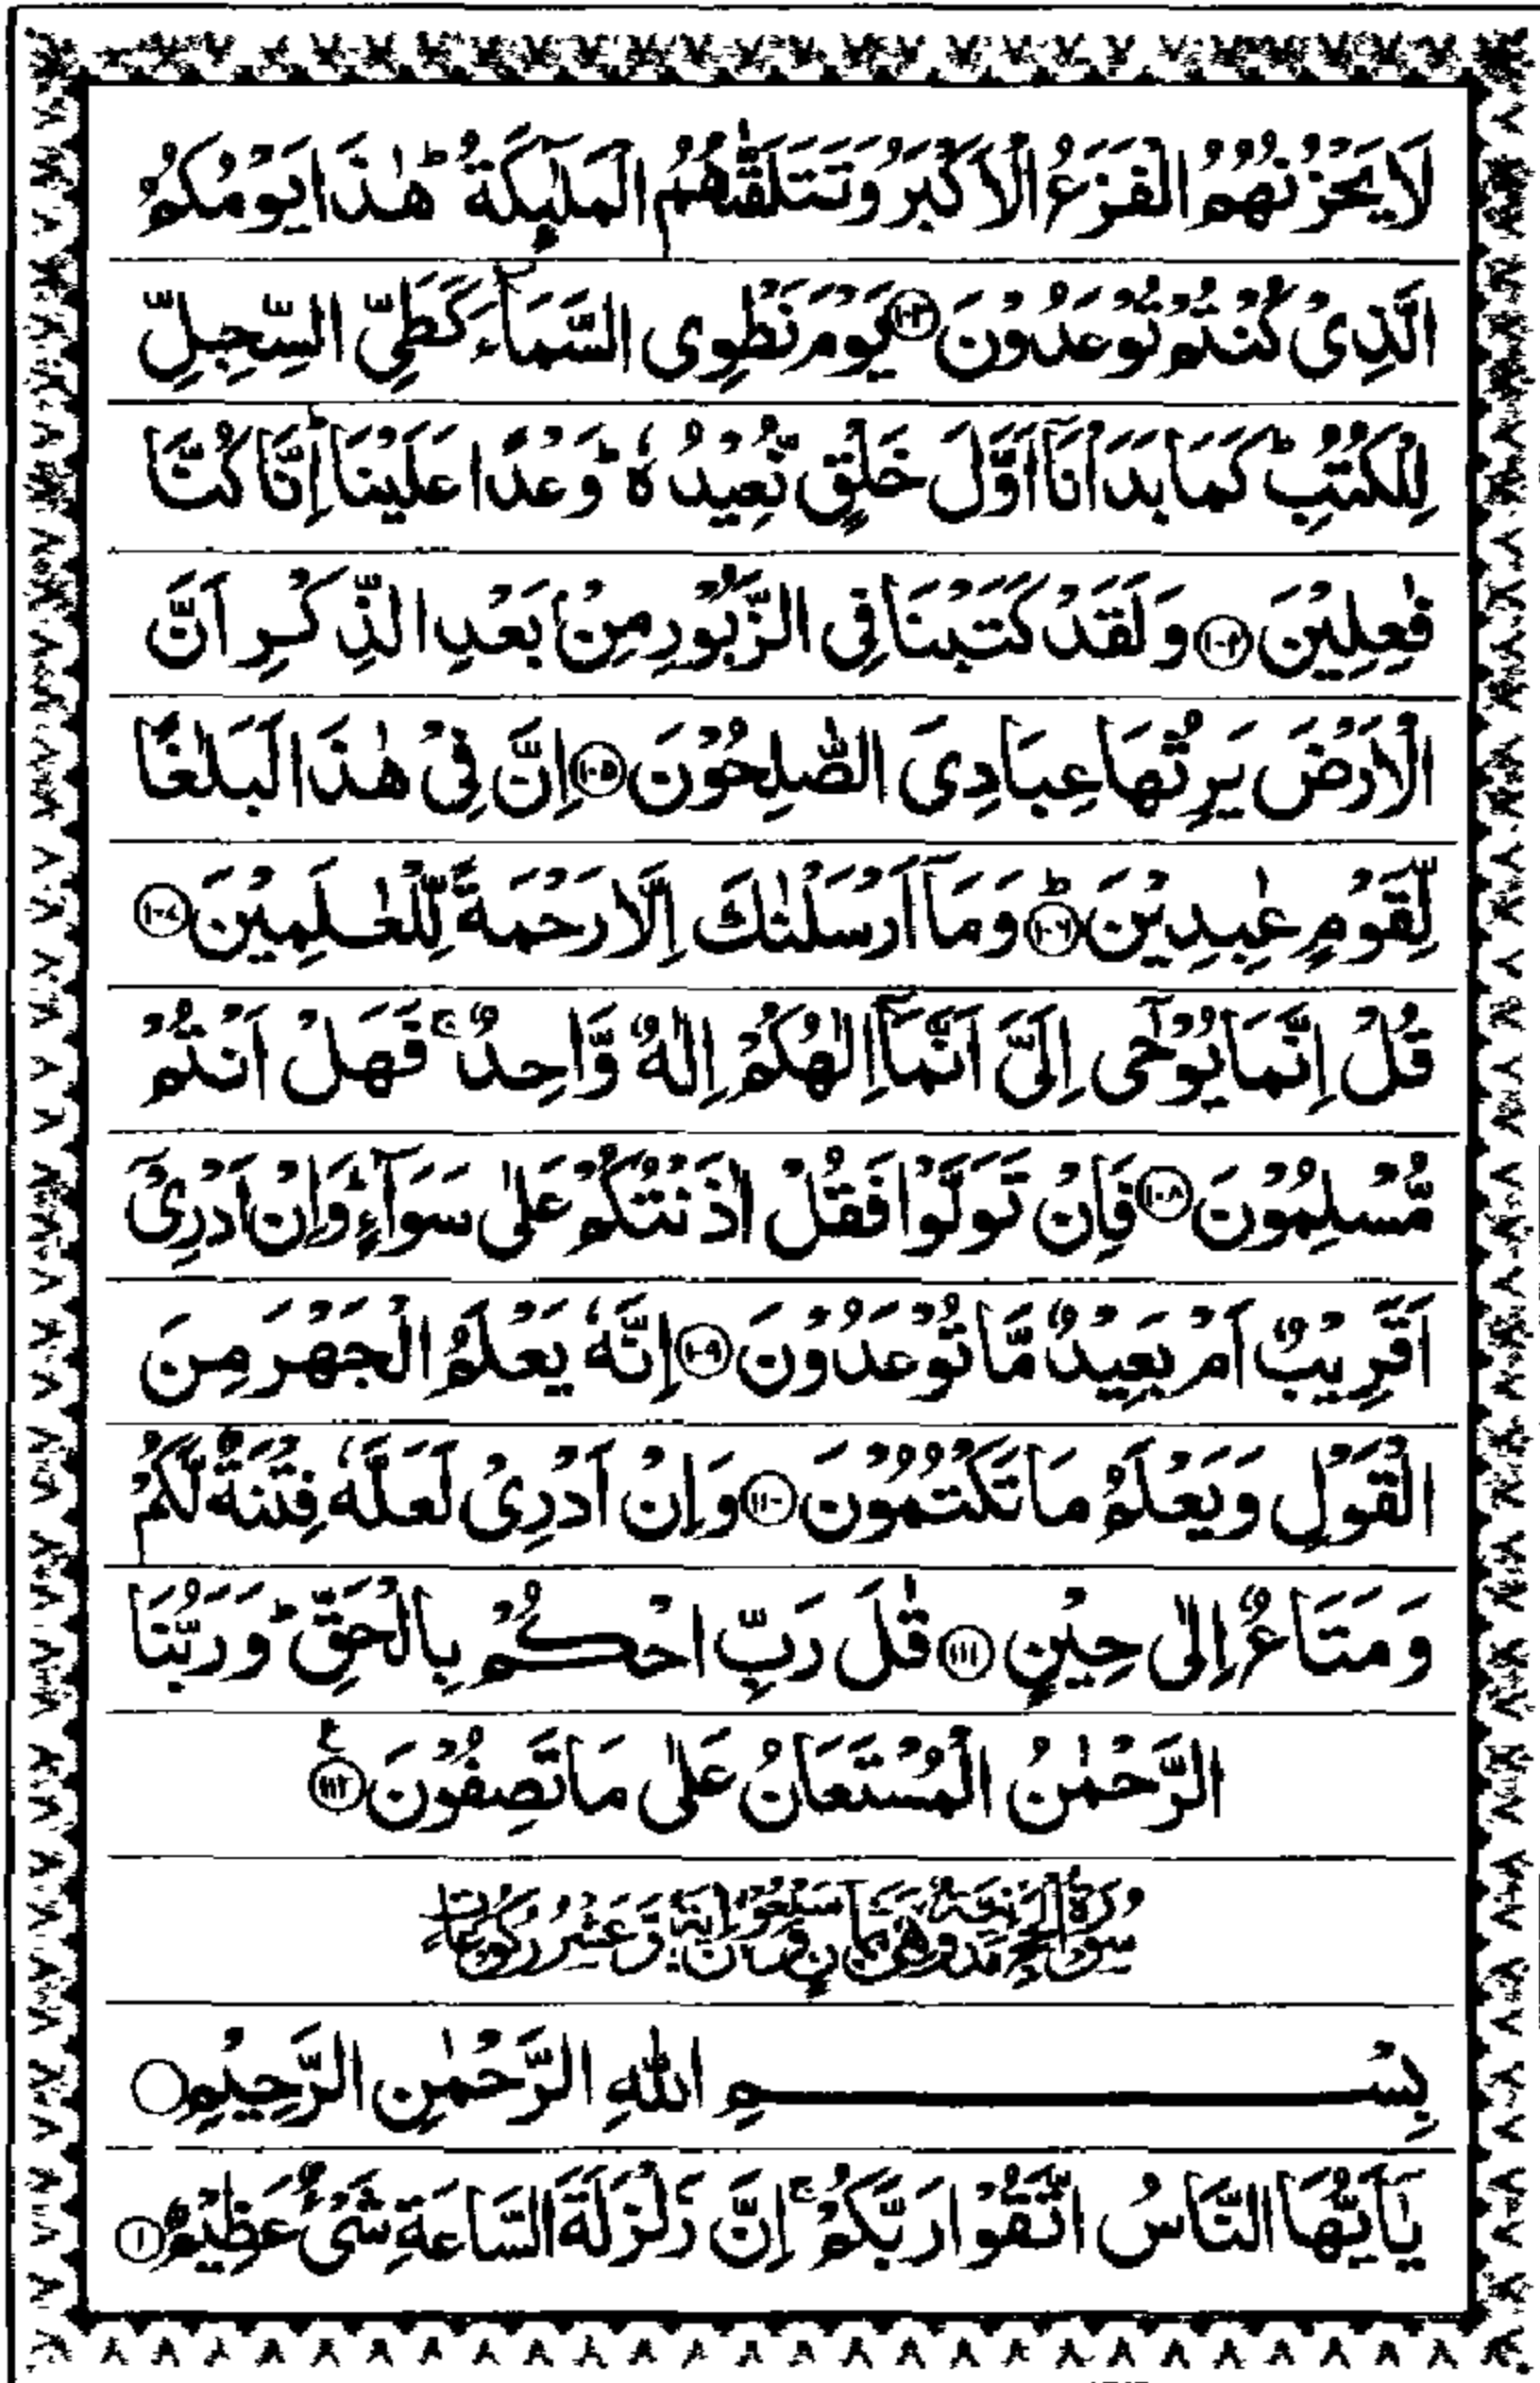 لَا يَحْزُنُهُمُ الْفَزَعُ الْاَكْبَرُ وَتَتَلَقّٰىهُمُ الْمَلٰٓئِكَةُ ؕ هٰذَا يَوْمُكُمُ
الَّذِىْ كُنْتُمْ تُوْعَدُوْنَ ﴿۱۰۳﴾ يَوْمَ نَطْوِى السَّمَآءَ كَطَىِّ السِّجِلِّ
لِلْكُتُبِ ؕ كَمَا بَدَاْنَاۤ اَوَّلَ خَلْقٍ نُّعِيْدُهٗ ؕ وَعْدًا عَلَيْنَا ؕ اِنَّا كُنَّا
فٰعِلِيْنَ ﴿۱۰۴﴾ وَلَقَدْ كَتَبْنَا فِى الزَّبُوْرِ مِنْۢ بَعْدِ الذِّكْرِ اَنَّ
الْاَرْضَ يَرِثُهَا عِبَادِىَ الصّٰلِحُوْنَ ﴿۱۰۵﴾ اِنَّ فِىْ هٰذَا لَبَلٰغًا
لِّقَوْمٍ عٰبِدِيْنَ ؕ﴿۱۰۶﴾ وَمَاۤ اَرْسَلْنٰكَ اِلَّا رَحْمَةً لِّلْعٰلَمِيْنَ ﴿۱۰۷﴾
قُلْ اِنَّمَا يُوْحٰۤى اِلَىَّ اَنَّمَاۤ اِلٰهُكُمْ اِلٰهٌ وَّاحِدٌ ۚ فَهَلْ اَنْتُمْ
مُّسْلِمُوْنَ ﴿۱۰۸﴾ فَاِنْ تَوَلَّوْا فَقُلْ اٰذَنْتُكُمْ عَلٰى سَوَآءٍ ؕ وَاِنْ اَدْرِىْۤ
اَقَرِيْبٌ اَمْ بَعِيْدٌ مَّا تُوْعَدُوْنَ ﴿۱۰۹﴾ اِنَّهٗ يَعْلَمُ الْجَهْرَ مِنَ
الْقَوْلِ وَيَعْلَمُ مَا تَكْتُمُوْنَ ﴿۱۱۰﴾ وَاِنْ اَدْرِىْ لَعَلَّهٗ فِتْنَةٌ لَّكُمْ
وَمَتَاعٌ اِلٰى حِيْنٍ ﴿۱۱۱﴾ قٰلَ رَبِّ احْكُمْ بِالْحَقِّ ؕ وَرَبُّنَا
الرَّحْمٰنُ الْمُسْتَعَانُ عَلٰى مَا تَصِفُوْنَ ﴿۱۱۲﴾ ع
سُوْرَةُ الْحَجِّ
بِسْمِ اللّٰهِ الرَّحْمٰنِ الرَّحِيْمِ
يٰۤاَيُّهَا النَّاسُ اتَّقُوْا رَبَّكُمْ ۚ اِنَّ زَلْزَلَةَ السَّاعَةِ شَىْءٌ عَظِيْمٌ ﴿۱﴾